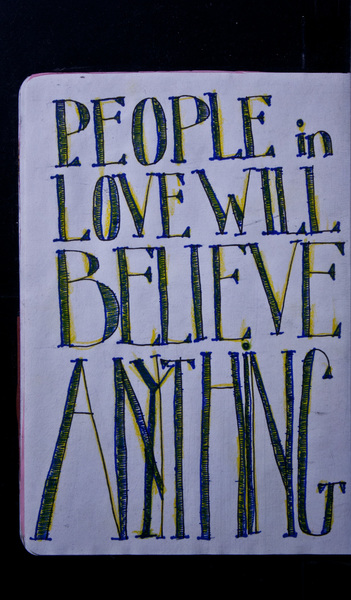 PEOPLE in
LOVE WILL
BELIEVE
ANYTHiNG